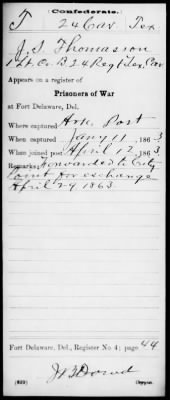 (Confederate.)
T 24 Cav Tex
J. S. Thomasson
Co. B 24 Reg Tex. Cav
Appears on a register of
Prisoners of War
at Fort Delaware, Del.
Where captured Ark. Post
When captured Jany 11, 1863
When joined post April 12, 1863
Remarks: Forwarded to City
Point for exchange
April 29 1863
Fort Delaware, Del., Register No. 4; page 44
(639) Copyist.